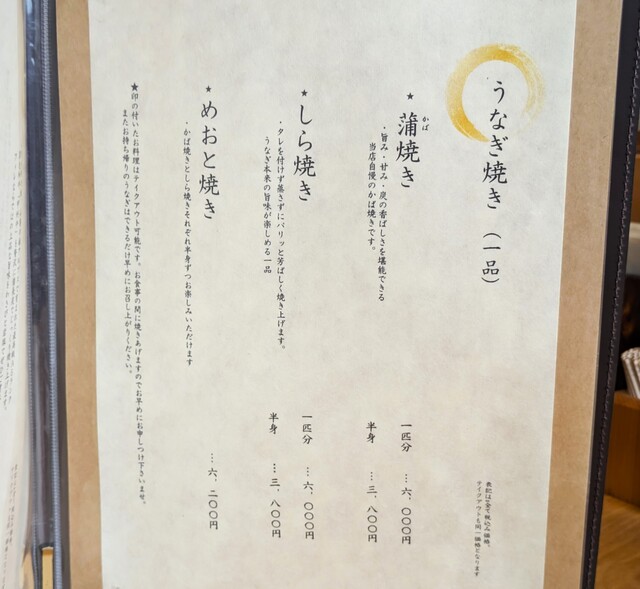 うなぎ焼き（一品）
表記は全て税込み価格、
テイクアウトも同一価格となります
★蒲焼き
かば
・旨み・甘み・炭の香ばしさを堪能できる
当店自慢のかば焼きです。
一匹分 …六、〇〇〇円
半身 …三、八〇〇円
★しら焼き
・タレを付けず蒸さずにパリッと芳ばしく焼き上げます。
うなぎ本来の旨味が楽しめる一品
一匹分 …六、〇〇〇円
半身 …三、八〇〇円
★めおと焼き
・かば焼きとしら焼きそれぞれ半身ずつお楽しみいただけます
…六、二〇〇円
★印の付いたお料理はテイクアウト可能です。お食事の間に焼きあげますのでお早めにお申しつけ下さいませ。
またお持ち帰りのうなぎはできるだけ早めにお召し上がりください。